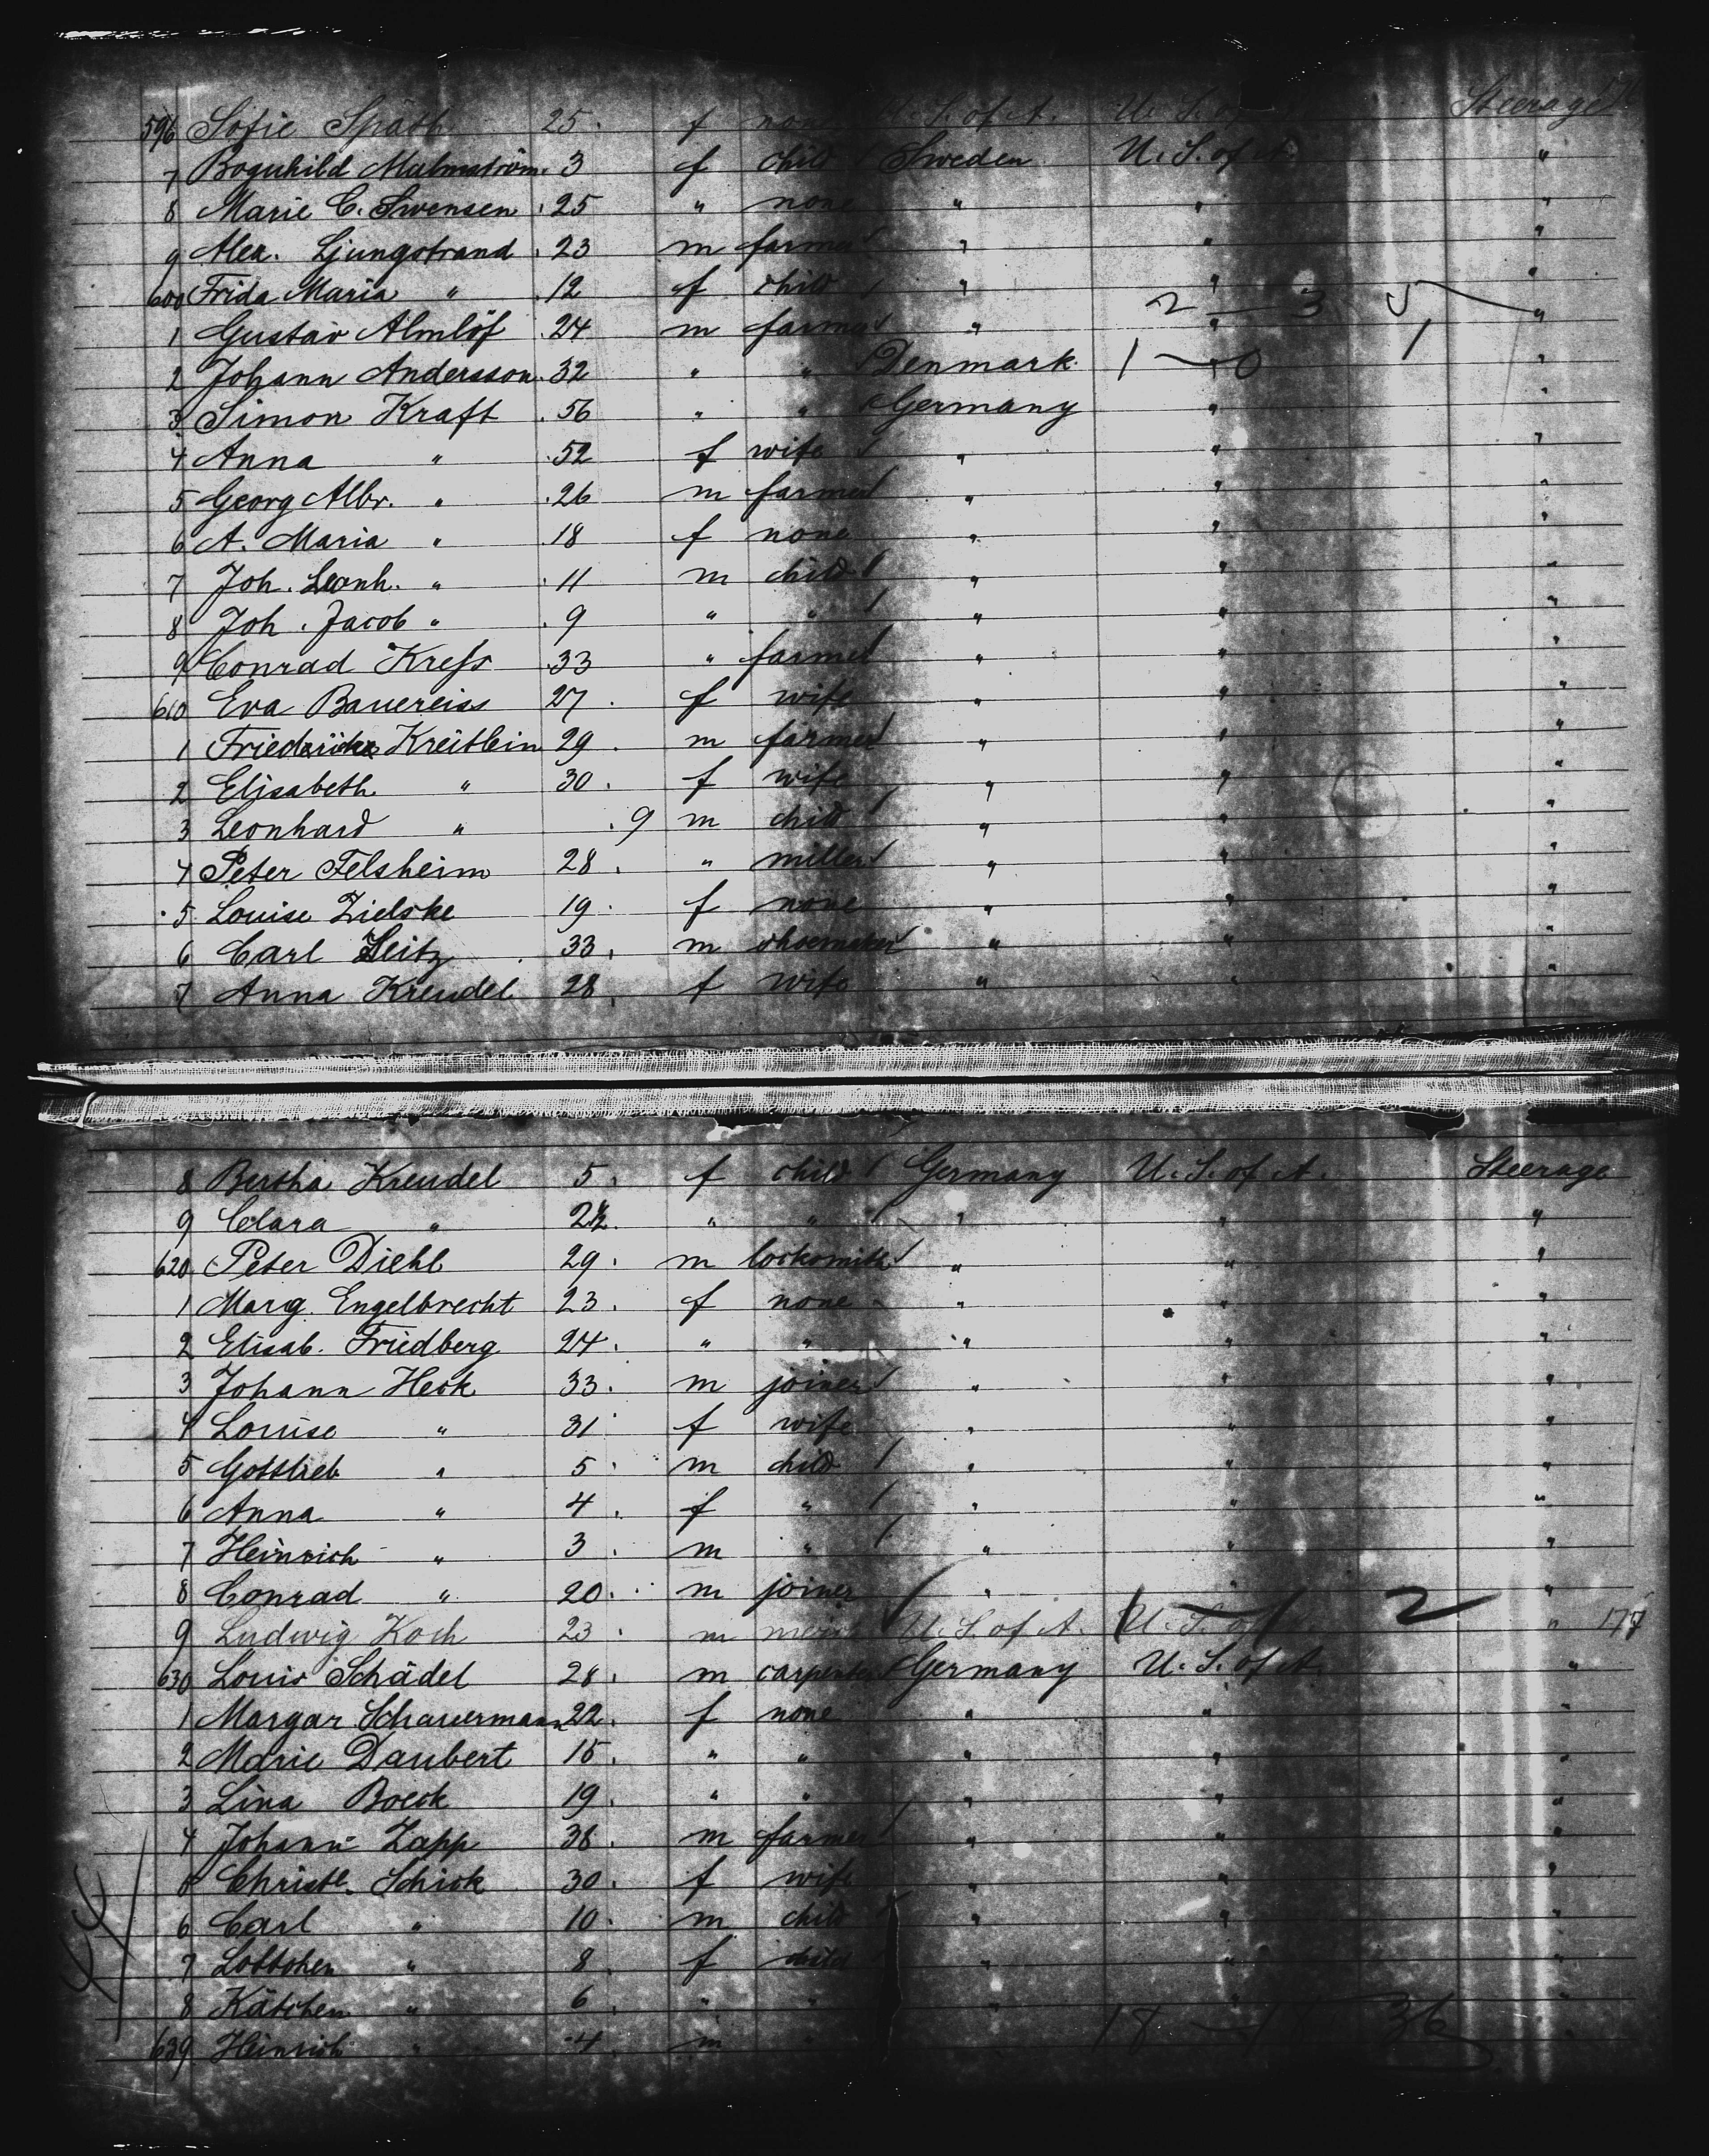 596 Sofie Späth 25 f none U. S. of A. U. S. of Steerage
7 Bognhild Malmström 3 f child Sweden U. S. of A. "
8 Marie C. Swensen 25 " none " " "
9 Alex. Ljungstrand 23 m farmer " " "
600 Frida Maria " 12 f child " " "
2 — 3 5
1 Gustav Almlöf 24 m farmer " " "
2 Johann Andersson 32 " " Denmark 1 — 0 " 1 "
3 Simon Kraft 56 " " Germany " "
4 Anna " 52 f wife " " "
5 Georg Albr. " 26 m farmer " " "
6 A. Maria " 18 f none " " "
7 Joh. Leonh. " 11 m child " " "
8 Joh. Jacob " 9 " " " " "
9 Conrad Kress 33 " farmer " " "
610 Eva Bauereiss 27 f wife " " "
1 Kreitlein 29 m farmer " " "
2 Elisabeth " 30 f wife " " "
3 Leonhard " 9 m child " " "
4 Peter Felsheim 28 " miller " " "
5 Louise Zielske 19 f none " " "
6 Carl Seitz 33 m shoemaker " " "
7 Anna Kreudel 28 f wife " " "
8 Bertha Kreudel 5 f child Germany U. S. of A. Steerage
9 Clara " " " " " "
620 Peter Diehl 29 m locksmith " " "
1 Marg. Engelbrecht 23 f none " " "
2 Elisab. Friedberg 24 " " " " "
3 Johann Heck 33 m joiner " " "
4 Louise " 31 f wife " " "
5 Gottlieb " 5 m child " " "
6 Anna " 4 f " " " "
7 Heinrich " 3 m " " " "
8 Conrad " 20 m joiner " " "
9 Ludwig Koch 23 m U. S. of A. U. S. of 2 " 177
630 Louis Schädel 28 m carpenter Germany U. S. of A. "
1 Margar. Schauermann 22 f none " " "
2 Marie Daubert 15 " " " " "
3 Lina Boeck 19 " " " " "
4 Johann Zapp 38 m farmer " " "
5 Christe. Schick 30 f wife " " "
6 Carl " 10 m child " " "
7 Lottchen " 8 f child " " "
8 Kätchen " 6 " " " " "
639 Heinrich " 4 m " 18 36